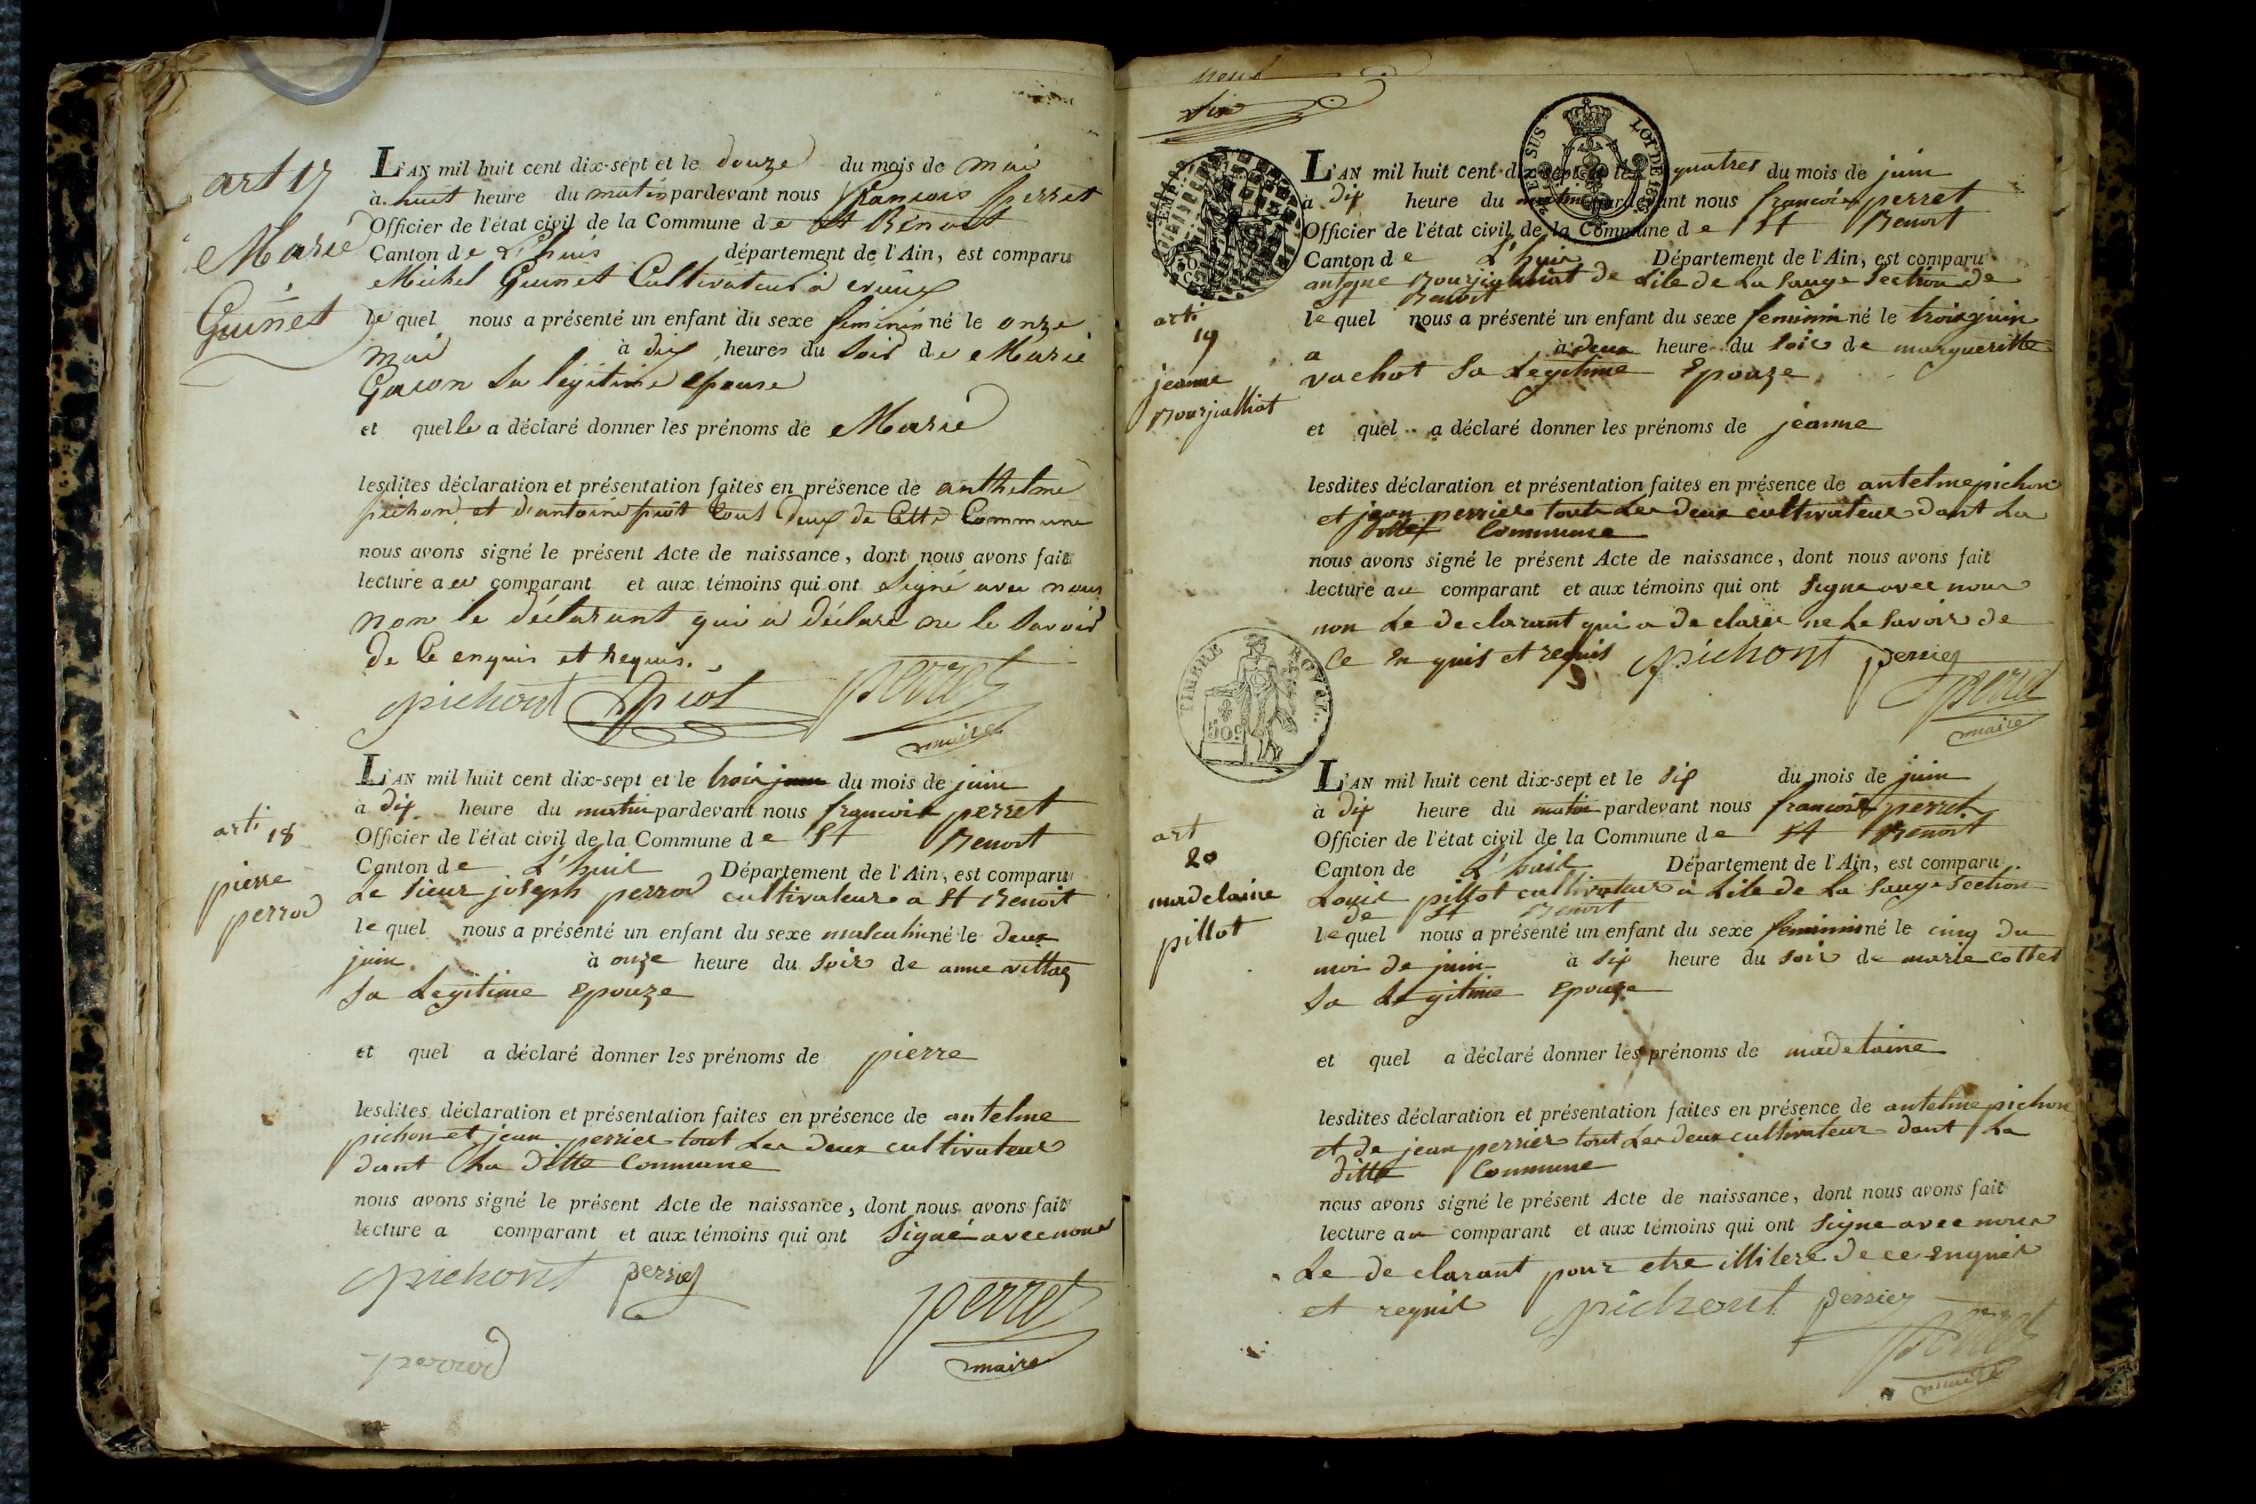 art 17
Marie
Guinet
L'AN mil huit cent dix-sept et le douze du mois de mai
à huit heure du matin pardevant nous françois perret
Officier de l'état civil de la Commune de St Benoit
Canton de L'huis département de l'Ain, est comparu
Michel Guinet Cultivateur à
lequel nous a présenté un enfant du sexe feminin né le onze
mai à dix heures du soir de Marie
Gacon sa légitime epouse
et quelle a déclaré donner les prénoms de Marie
lesdites déclaration et présentation faites en présence de anthelme
pichon et d'antoine piot tout deux de cette Commune
nous avons signé le présent Acte de naissance, dont nous avons fait
lecture au comparant et aux témoins qui ont signé avec nous
non le déclarant qui a déclaré ne le savoir
de ce enquis et requis.
pichont piot perret
maire
arti
18
pierre
perrod
L'AN mil huit cent dix-sept et le trois juin du mois de juin
à dix heure du matin pardevant nous francois perret
Officier de l'état civil de la Commune de St Benoit
Canton de L'huis Département de l'Ain, est comparu
Le sieur joseph perrod cultivateur a St Benoit
lequel nous a présenté un enfant du sexe masculin né le deux
juin à onze heure du soir de anne
sa Legitime Epouze
et quel a déclaré donner les prénoms de pierre
lesdites déclaration et présentation faites en présence de antelme
pichon et jean perrier tout Les deux cultivateur
dant La ditte Commune
nous avons signé le présent Acte de naissance, dont nous avons fait
lecture a comparant et aux témoins qui ont signé avec nous
pichont perrier
perret
maire
perrod
neuf
dix
EN SUS LOI DE 1816
TIMBRE
50 C
arti
19
jeanne
L'AN mil huit cent dix-sept et le quatres du mois de juin
a dix heure du matin pardevant nous francois perret
Officier de l'état civil de la Commune de St Benoit
Canton de L'huis Département de l'Ain, est comparu
antoyne de Lile de La Sauge Section de
St Benoit
lequel nous a présenté un enfant du sexe feminin né le trois juin
a à deux heure du soir de margueritte
vachot sa Legitime Epouze
et quel a déclaré donner les prénoms de jeanne
lesdites déclaration et présentation faites en présence de antelme pichon
et jean perrier toute Les deux cultivateur dant La
ditte Commune
nous avons signé le présent Acte de naissance, dont nous avons fait
lecture au comparant et aux témoins qui ont signe avec nous
non Le declarant qui a declarer ne Le savoir de
ce en quis et requis pichont perrier
perret
maire
TIMBRE ROYAL
50 C
art
20
madelaine
pillot
L'AN mil huit cent dix-sept et le six du mois de juin
à dix heure du matin pardevant nous francois perret
Officier de l'état civil de la Commune de St Benoit
Canton de L'huis Département de l'Ain, est comparu
Louis pillot cultivateur a Lile de La Sauge Section
de St Benoit
lequel nous a présenté un enfant du sexe feminin né le cinq du
moi de juin à six heure du soir de marie cottet
sa Legitime Epouze
et quel a déclaré donner les prénoms de madelaine
lesdites déclaration et présentation faites en présence de antelme pichon
et de jean perrier tout Les deux cultivateur dant La
ditte Commune
nous avons signé le présent Acte de naissance, dont nous avons fait
lecture au comparant et aux témoins qui ont signe avec nous
Le declarant pour etre illitere de ce enquis
et requis pichont perrier
perret
maire